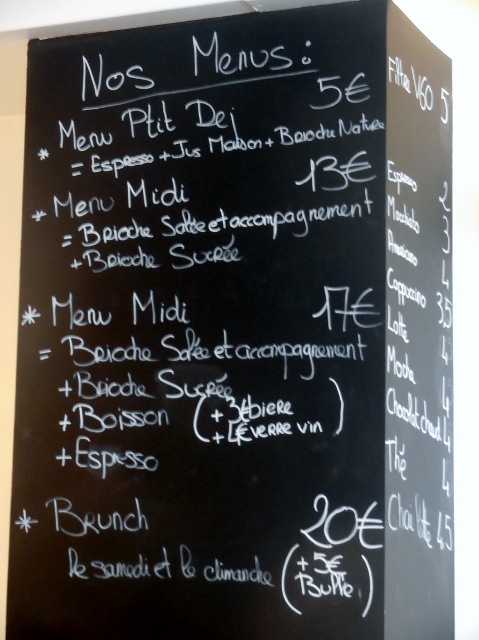 Nos Menus :
* Menu Ptit Dej 5€
= Espresso + Jus Maison + Brioche Nature
* Menu Midi 13€
= Brioche Salée et accompagnement
+ Brioche Sucrée
* Menu Midi 17€
= Brioche Salée et accompagnement
+ Brioche Sucrée
+ Boisson (+3€ biere
+ 4€ verre vin)
+ Espresso
* Brunch 20€
le samedi et le dimanche (+5€
Bulle)
Filtre V60 5
Espresso 2
Macchiato 3
Americano 4
Cappuccino 3,5
Latte 4
Mocha 4
Chocolat chaud 4
Thé 4
Chai latte 4,5